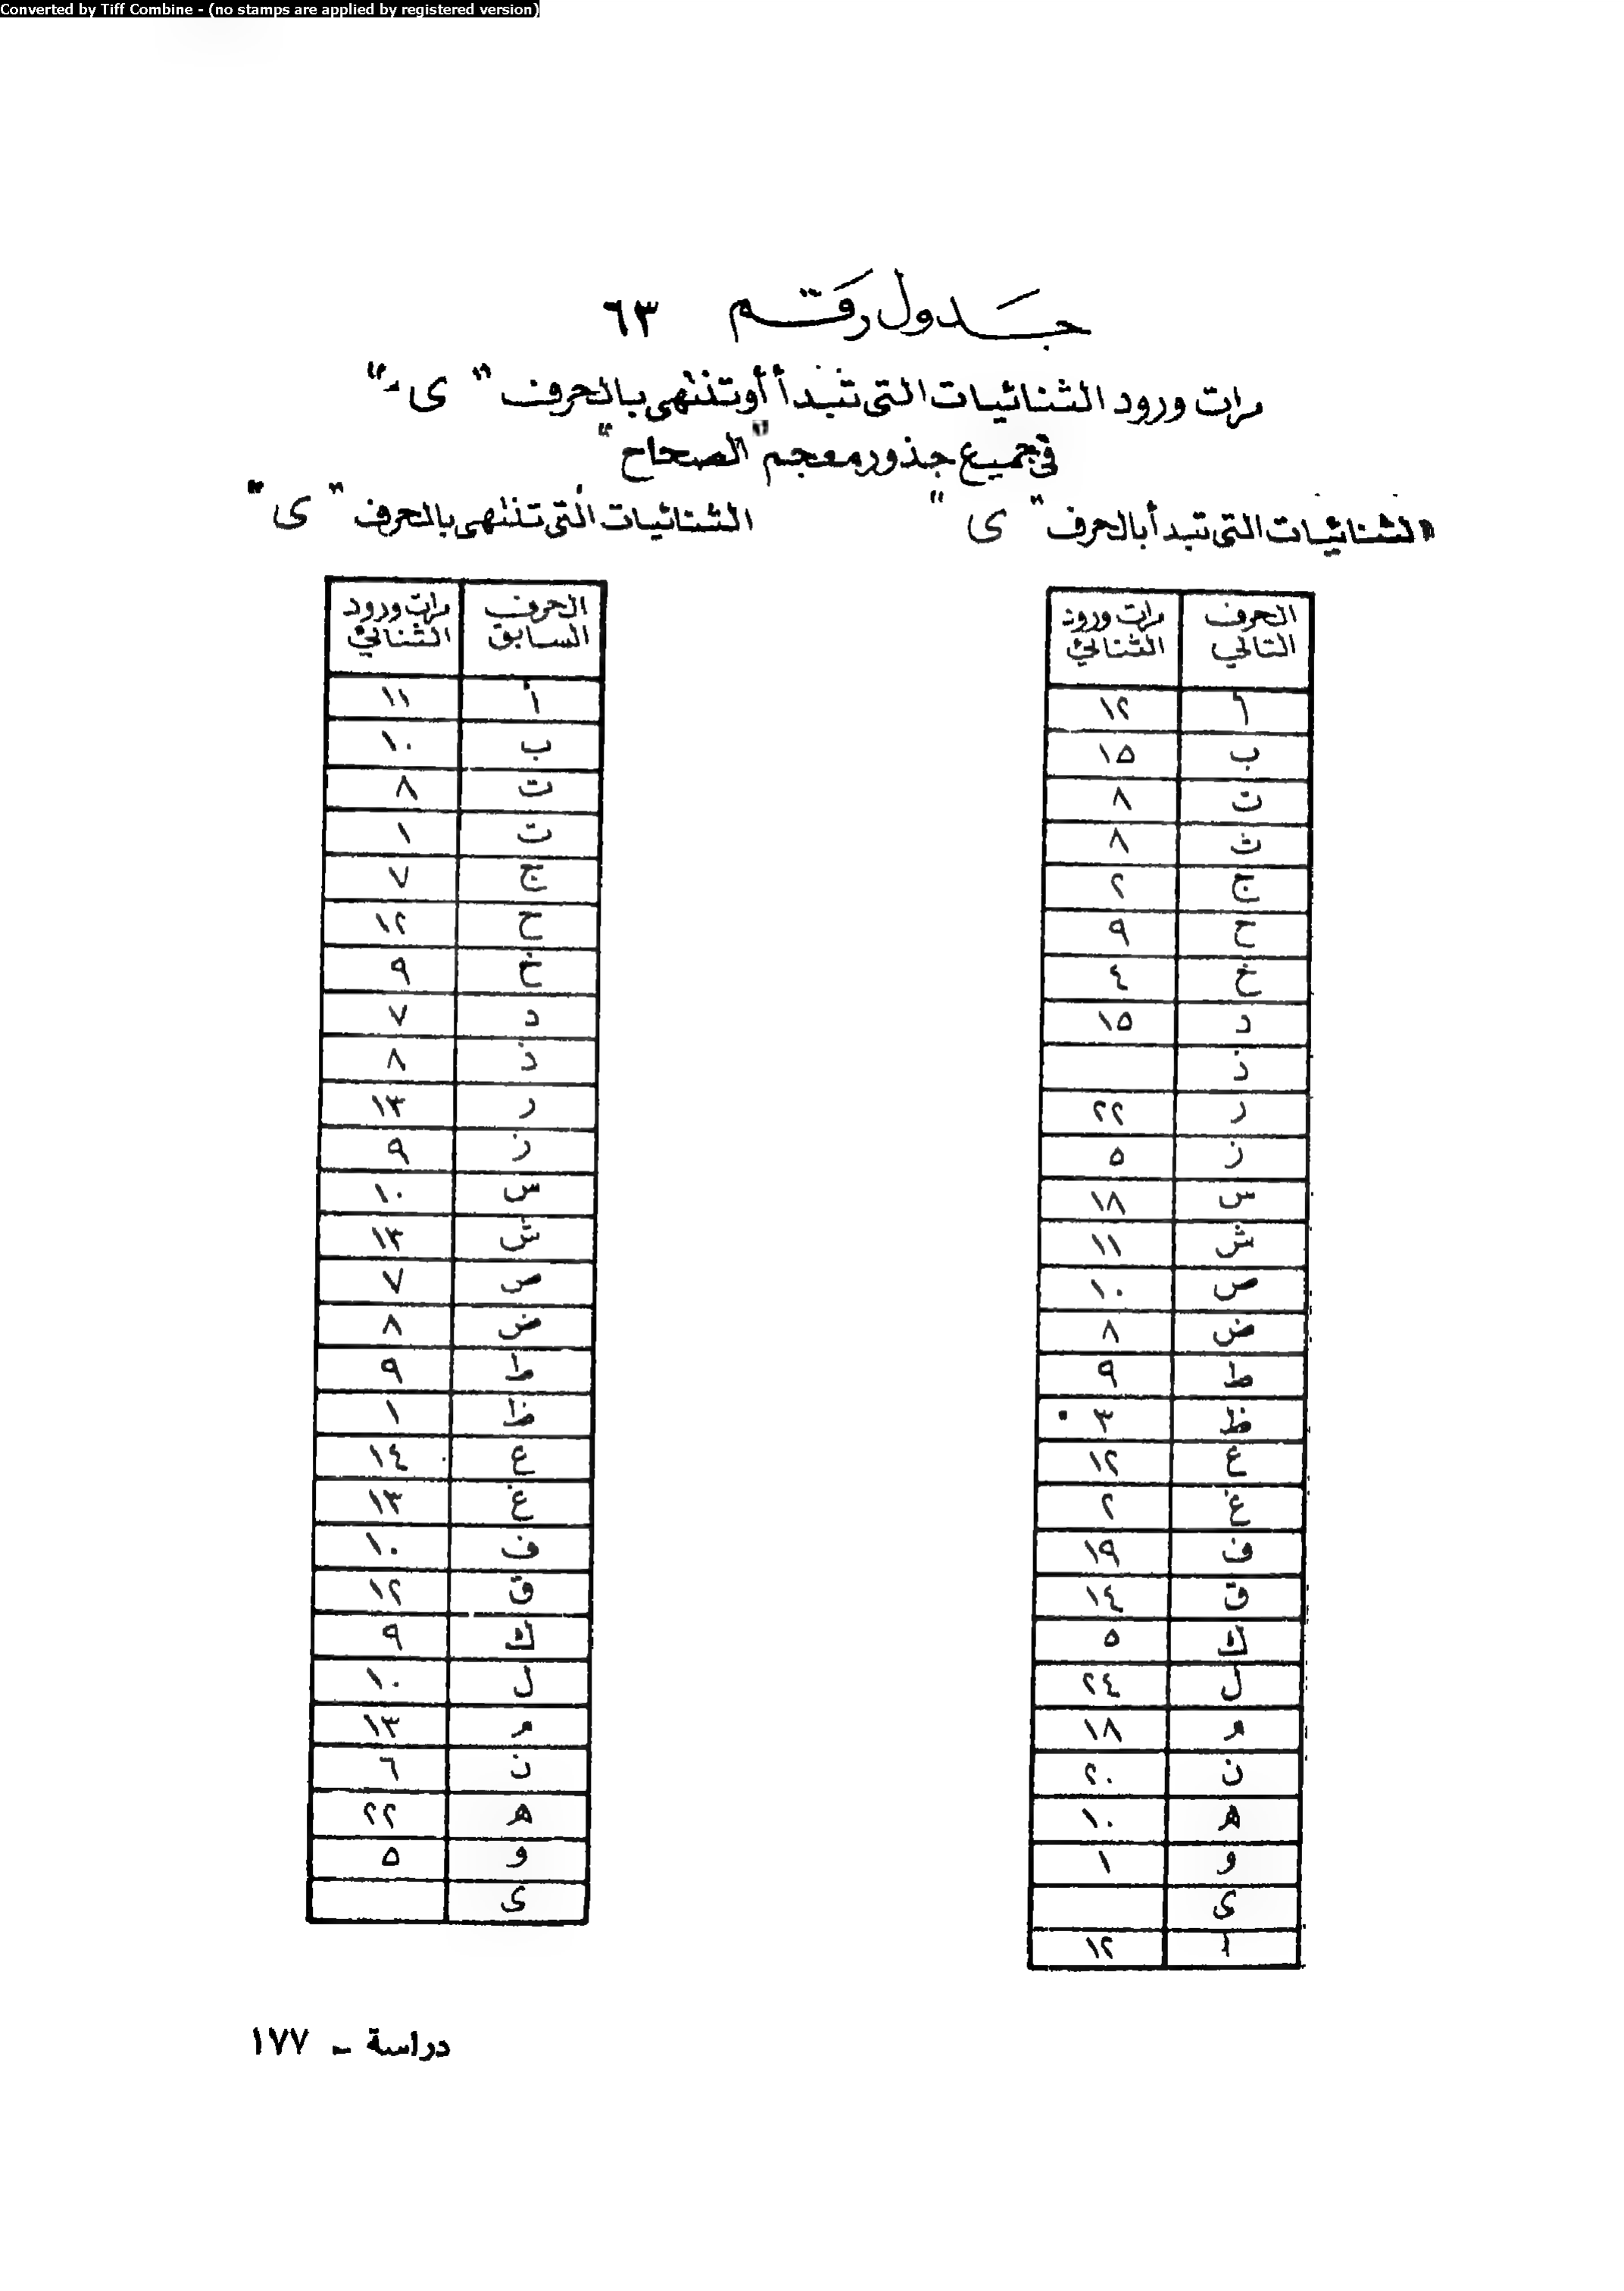 Converted by Tiff Combine - (no stamps are applied by registered version)
جدول رقم ٦٣
مرات ورود الثنائيات التى تبدأ أو تنتهى بالحرف "ى"
فى جميع جذور معجم "الصحاح"
الثنائيات التى تبدأ بالحرف "ى"
الحرف التالي مرات ورود الثنائي
أ ١٢
ب ١٥
ت ٨
ث ٨
ج ٢
ح ٩
خ ٤
د ١٥
ذ
ر ٢٢
ز ٥
س ١٨
ش ١١
ص ١٠
ض ٨
ط ٩
ظ ٣
ع ١٢
غ ٢
ف ١٩
ق ١٤
ك ٥
ل ٢٤
م ١٨
ن ٢٠
ه ١٠
و ١
ى
أ ١٢
الثنائيات التى تنتهى بالحرف "ى"
الحرف السابق مرات ورود الثنائي
أ ١١
ب ١٠
ت ٨
ث ١
ج ٧
ح ١٢
خ ٩
د ٧
ذ ٨
ر ١٣
ز ٩
س ١٠
ش ١٣
ص ٧
ض ٨
ط ٩
ظ ١
ع ١٤
غ ١٣
ف ١٠
ق ١٢
ك ٩
ل ١٠
م ١٣
ن ٦
ه ٢٢
و ٥
ى
دراسة - ١٧٧